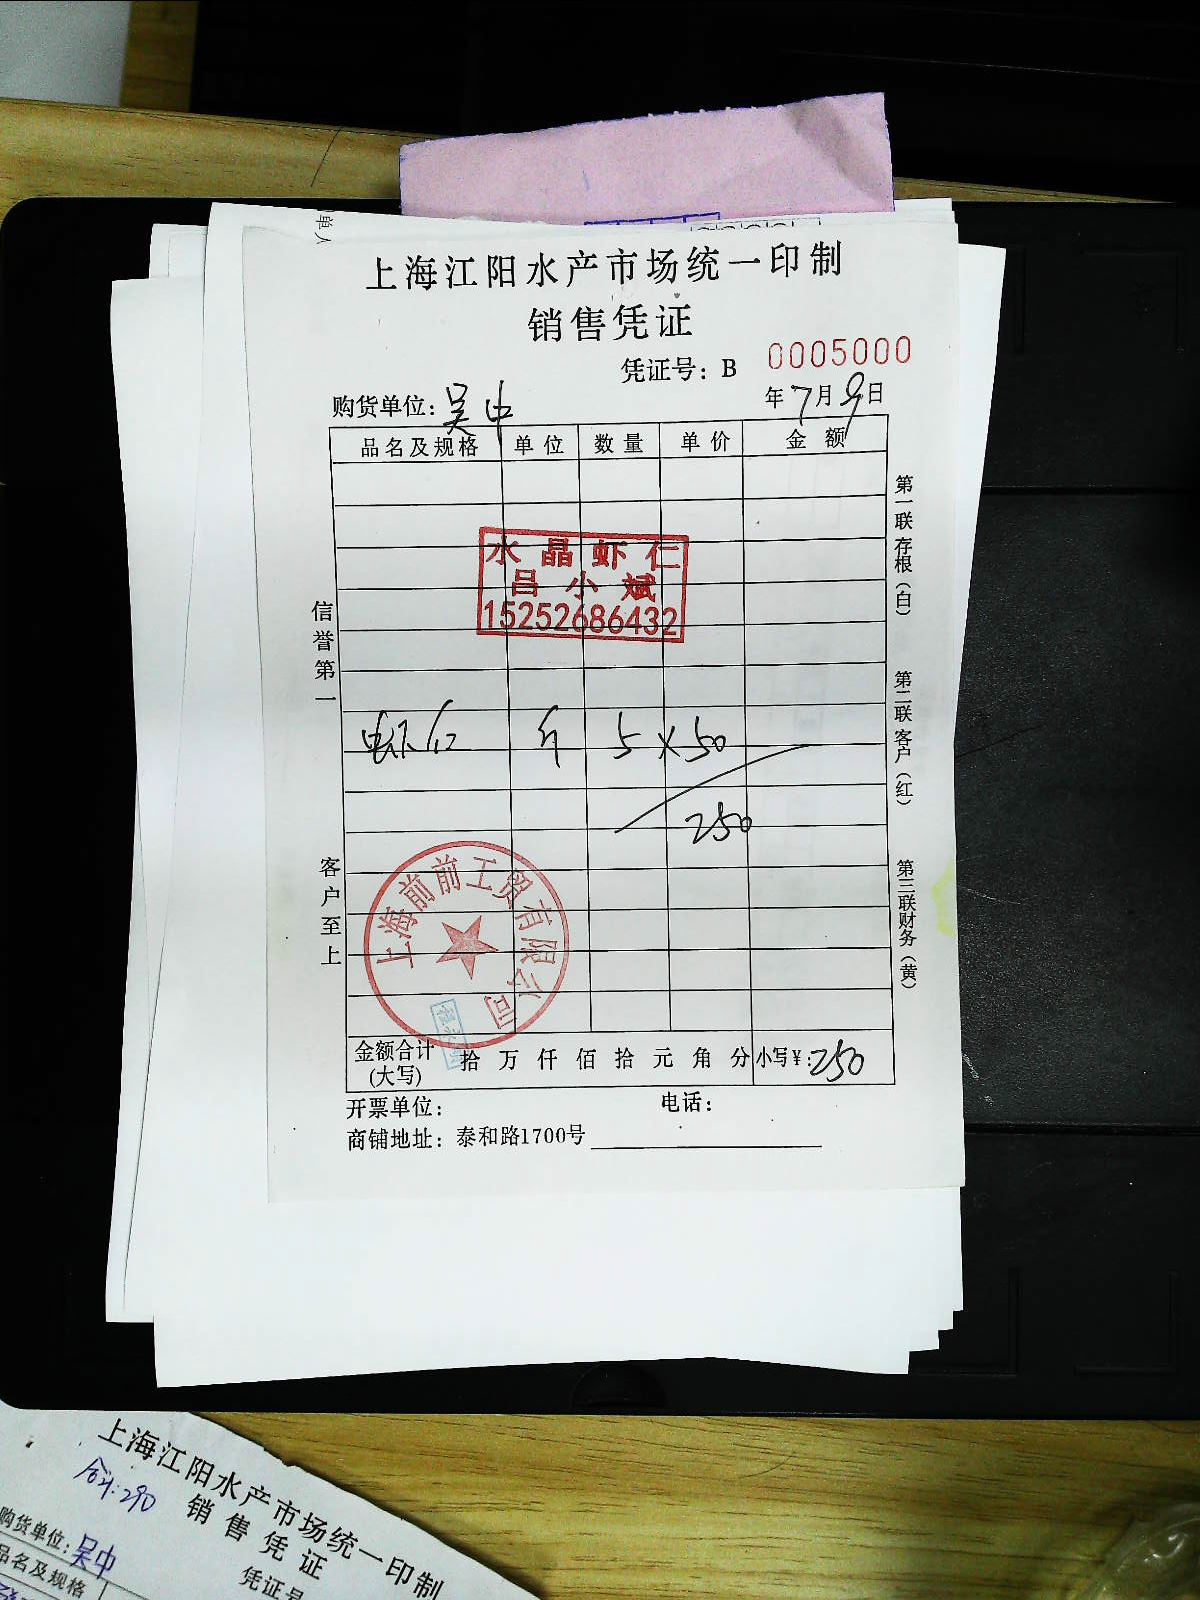 上海江阳水产市场统一印制
销售凭证
凭证号：B 0005000
购货单位：吴中
年7月9日
品名及规格 单位 数量 单价 金额
水晶虾仁
吕小斌
15252686432
虾仁 斤 5×50
250
上海前前工贸有限公司
金额合计(大写) 拾 万 仟 佰 拾 元 角 分 小写¥：250
开票单位： 电话：
商铺地址：泰和路1700号
信誉第一
客户至上
第一联存根（白）
第二联客户（红）
第三联财务（黄）
上海江阳水产市场统一印制
合计：290
销售凭证
购货单位：吴中
凭证号
品名及规格